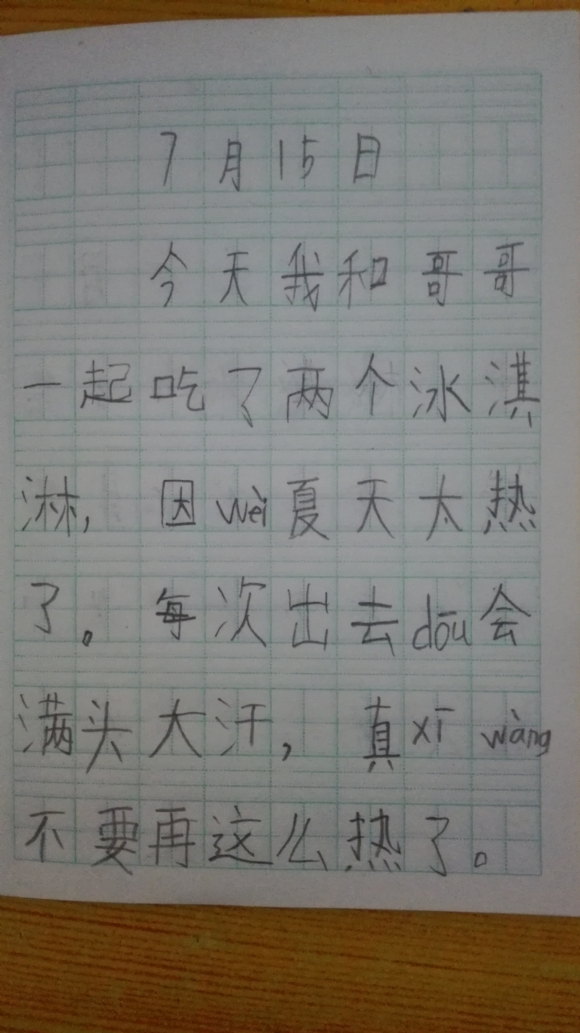 7月15日
今天我和哥哥
一起吃了两个冰淇
淋，因wèi夏天太热
了。每次出去dōu会
满头大汗，真xī wàng
不要再这么热了。